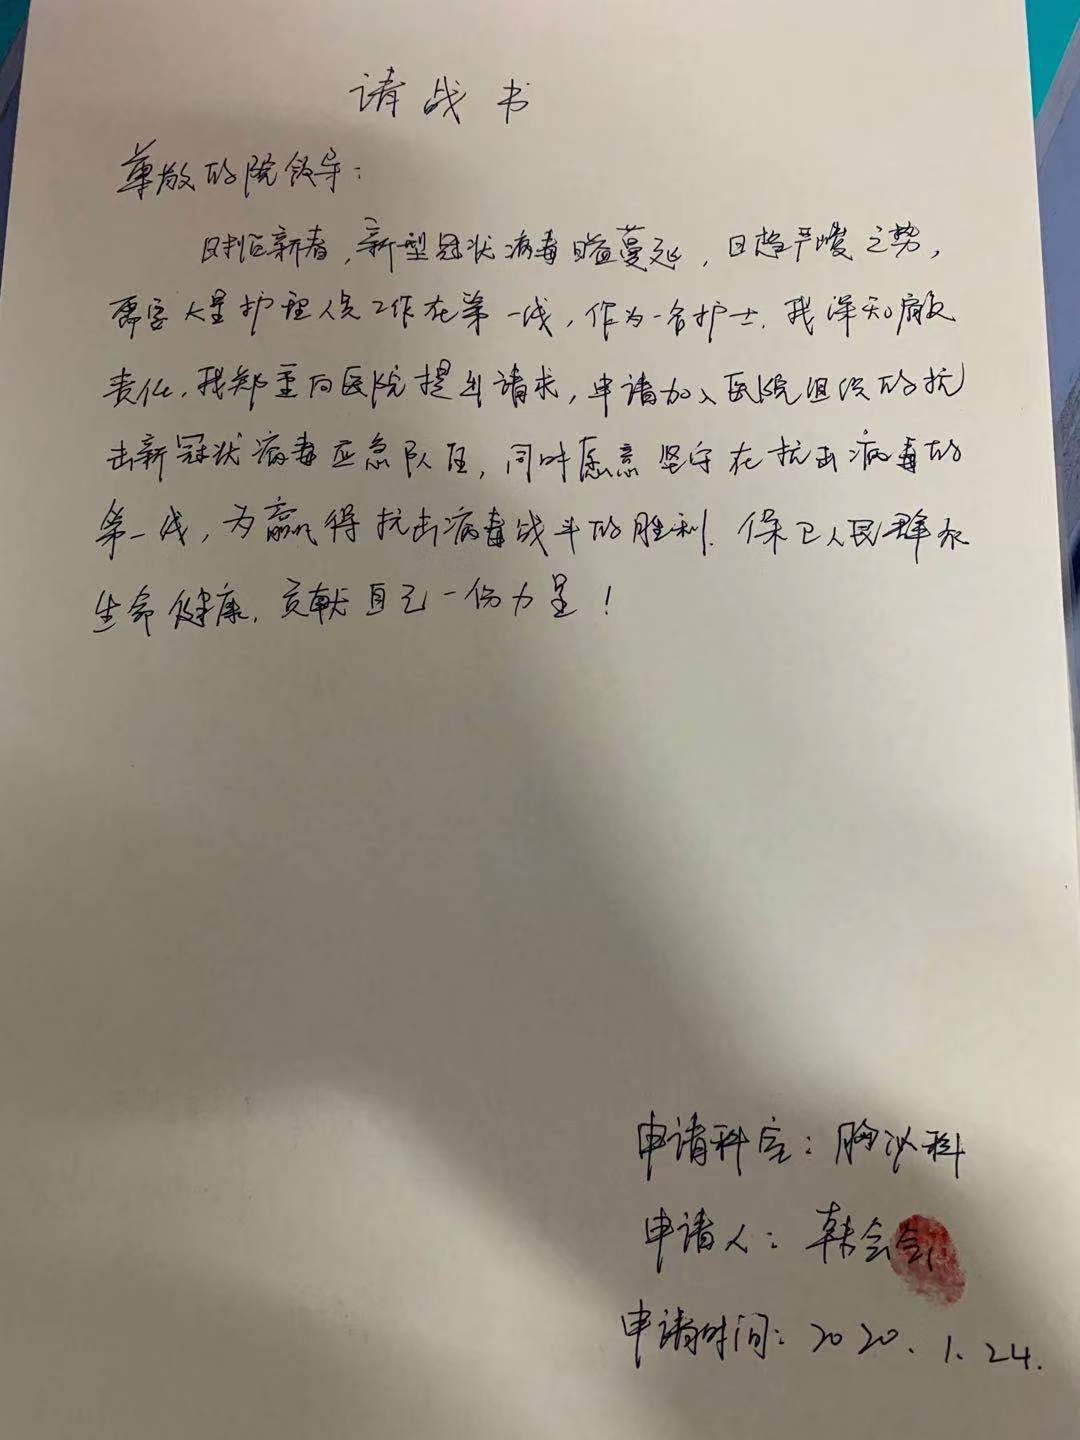 请战书
尊敬的院领导：
时值新春，新型冠状病毒日益蔓延，日趋严峻之势，
需要大量护理人员工作在第一线，作为一名护士，我深知
责任，我郑重向医院提出请求，申请加入医院组织的抗
击新冠状病毒应急队伍，同时愿意坚守在抗击病毒的
第一线，为赢得抗击病毒战斗的胜利，保卫人民群众
生命健康，贡献自己一份力量！
申请科室：胸泌科
申请人：韩会会
申请时间：2020.1.24.